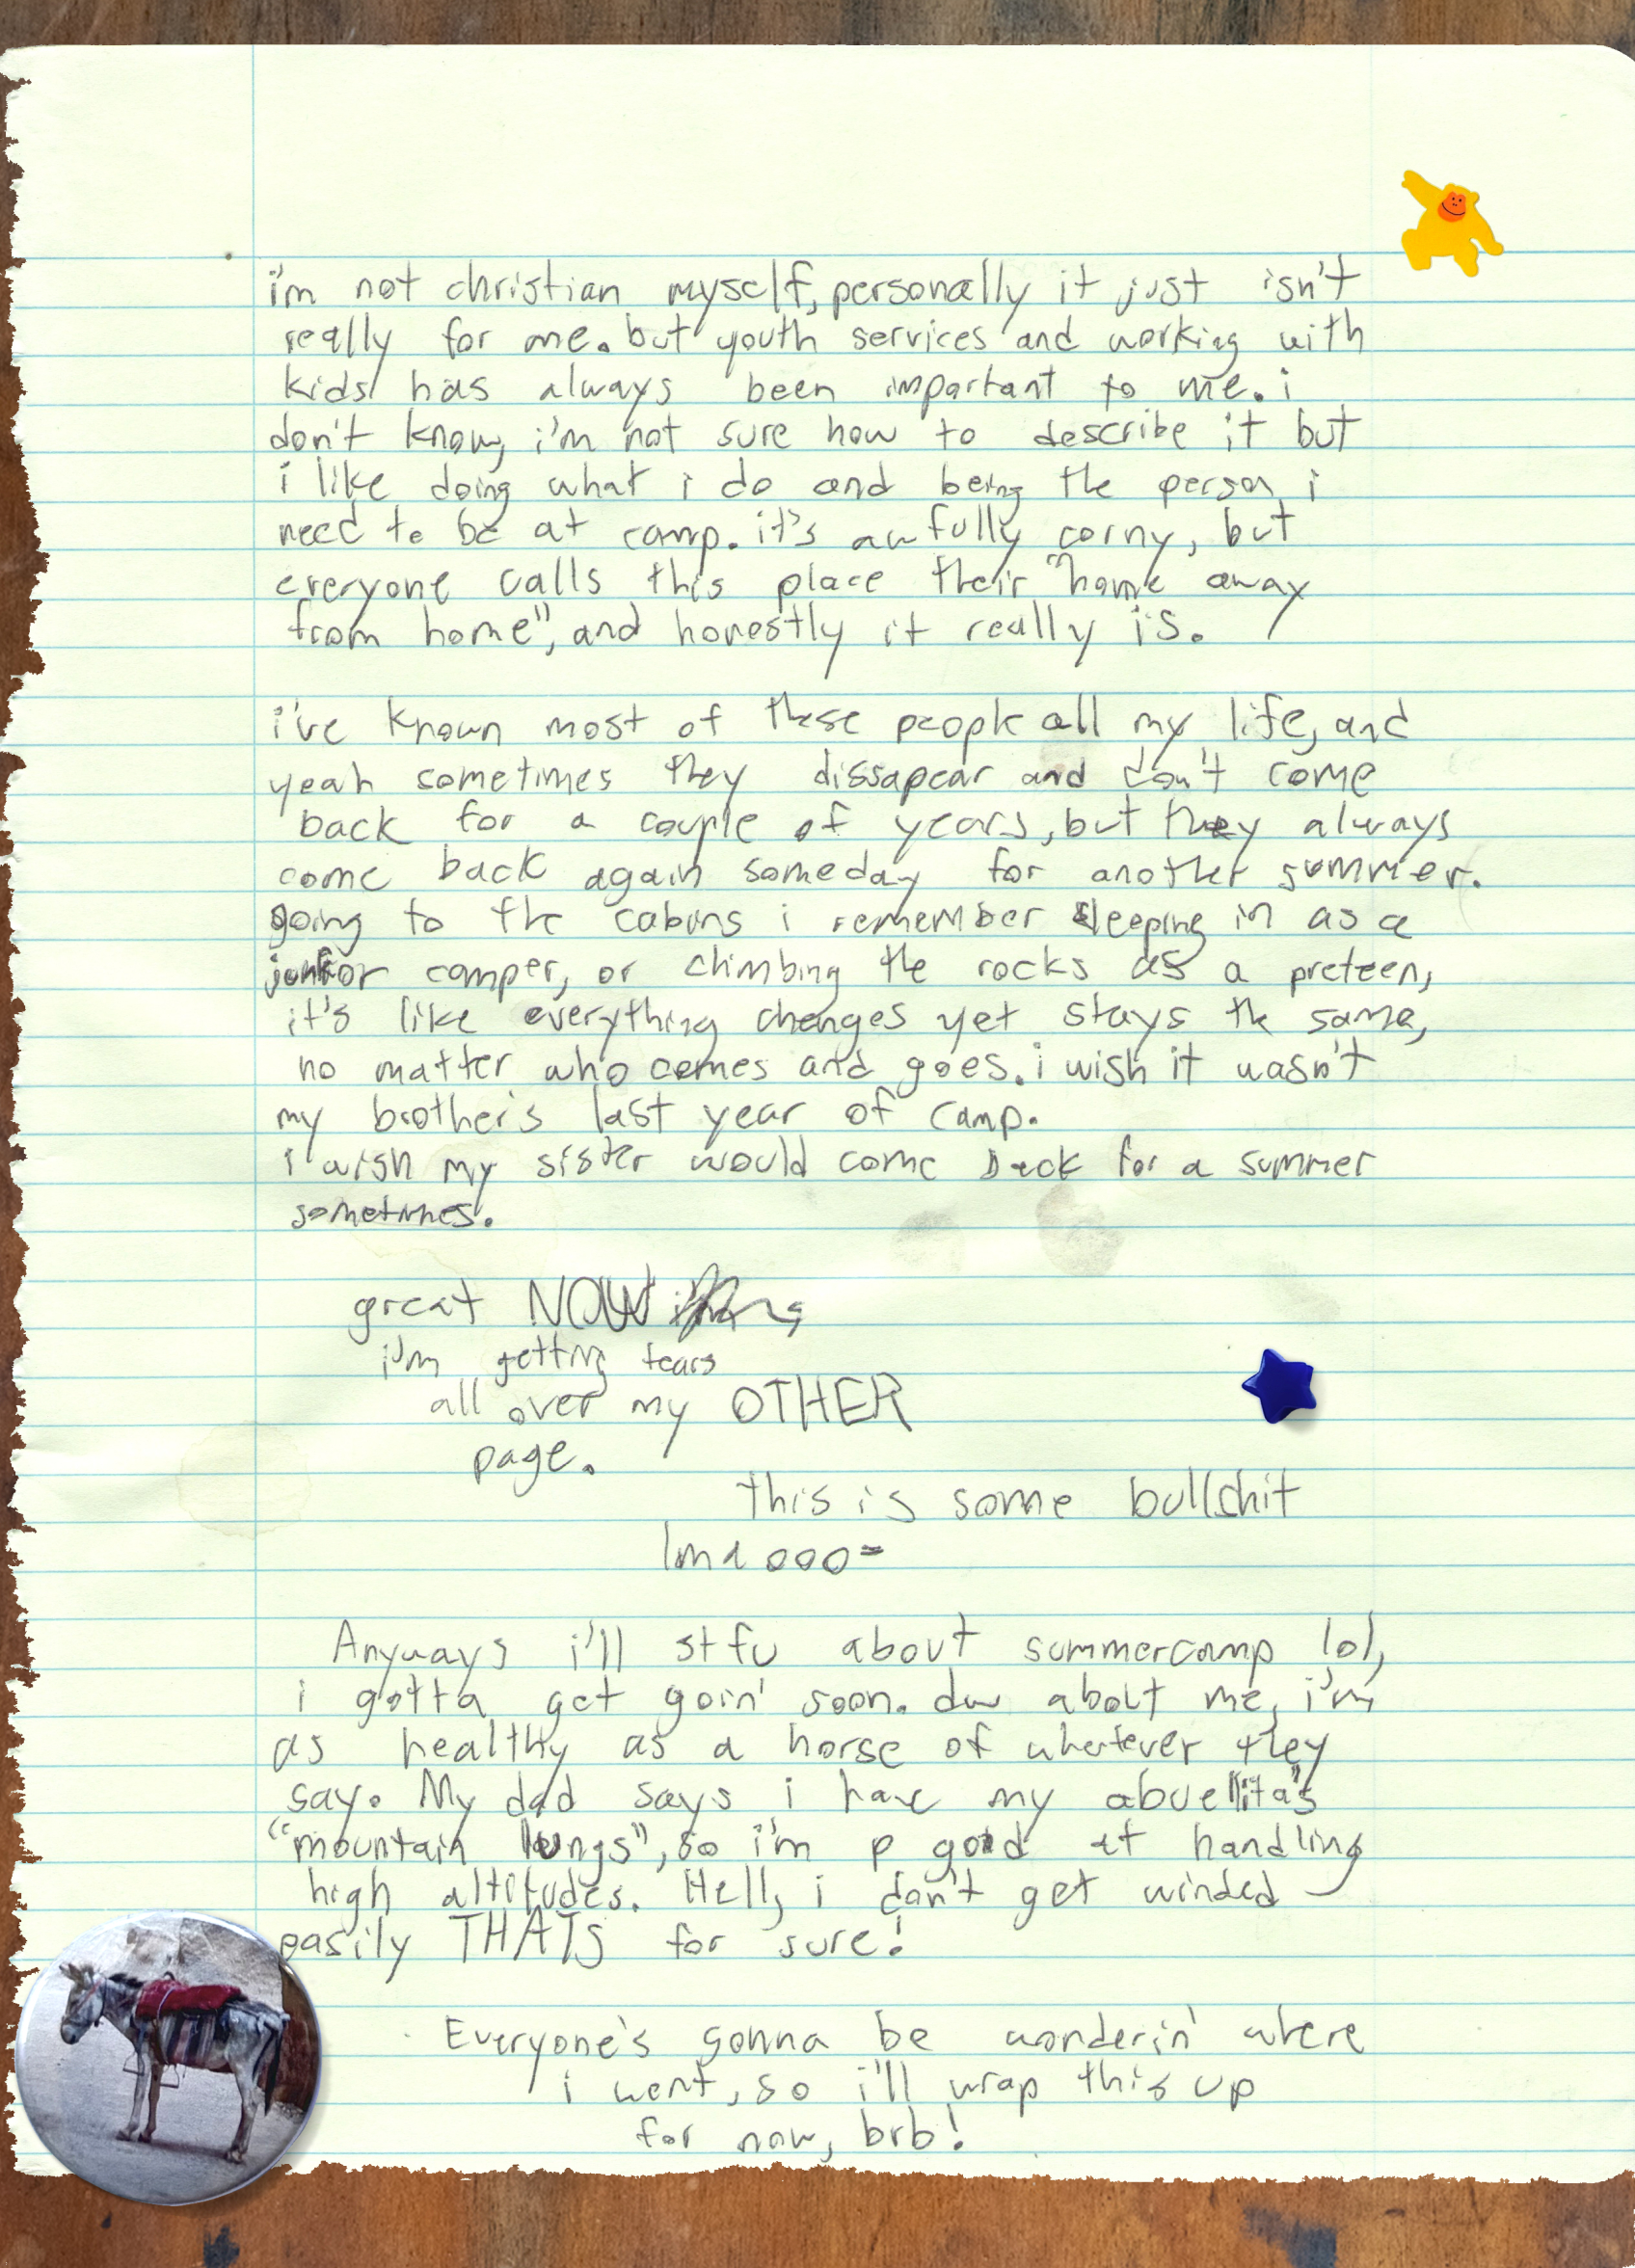 i'm not christian myself, personally it just isn't
really for me. but youth services and working with
kids has always been important to me. i
don't know, i'm not sure how to describe it but
i like doing what i do and being the person i
need to be at camp. it's awfully corny, but
everyone calls this place their "home away
from home", and honestly it really is.
i've known most of these people all my life, and
yeah sometimes they dissapear and don't come
back for a couple of years, but they always
come back again someday for another summer.
going to the cabins i remember sleeping in as a
junior camper, or climbing the rocks as a preteen,
it's like everything changes yet stays the same,
no matter who comes and goes. i wish it wasn't
my brother's last year of camp.
i wish my sister would come back for a summer
sometimes.
great NOW
i'm getting tears
all over my OTHER
page.
this is some bullshit
lmaooo=
Anyways i'll stfu about summercamp lol,
i gotta get goin' soon. dw about me, i'm
as healthy as a horse of whatever they
say. My dad says i have my abuelita's
"mountain lungs", so i'm p good at handling
high altitudes. Hell, i don't get winded
easily THATS for sure!
Everyone's gonna be wonderin' where
i went, so i'll wrap this up
for now, brb!